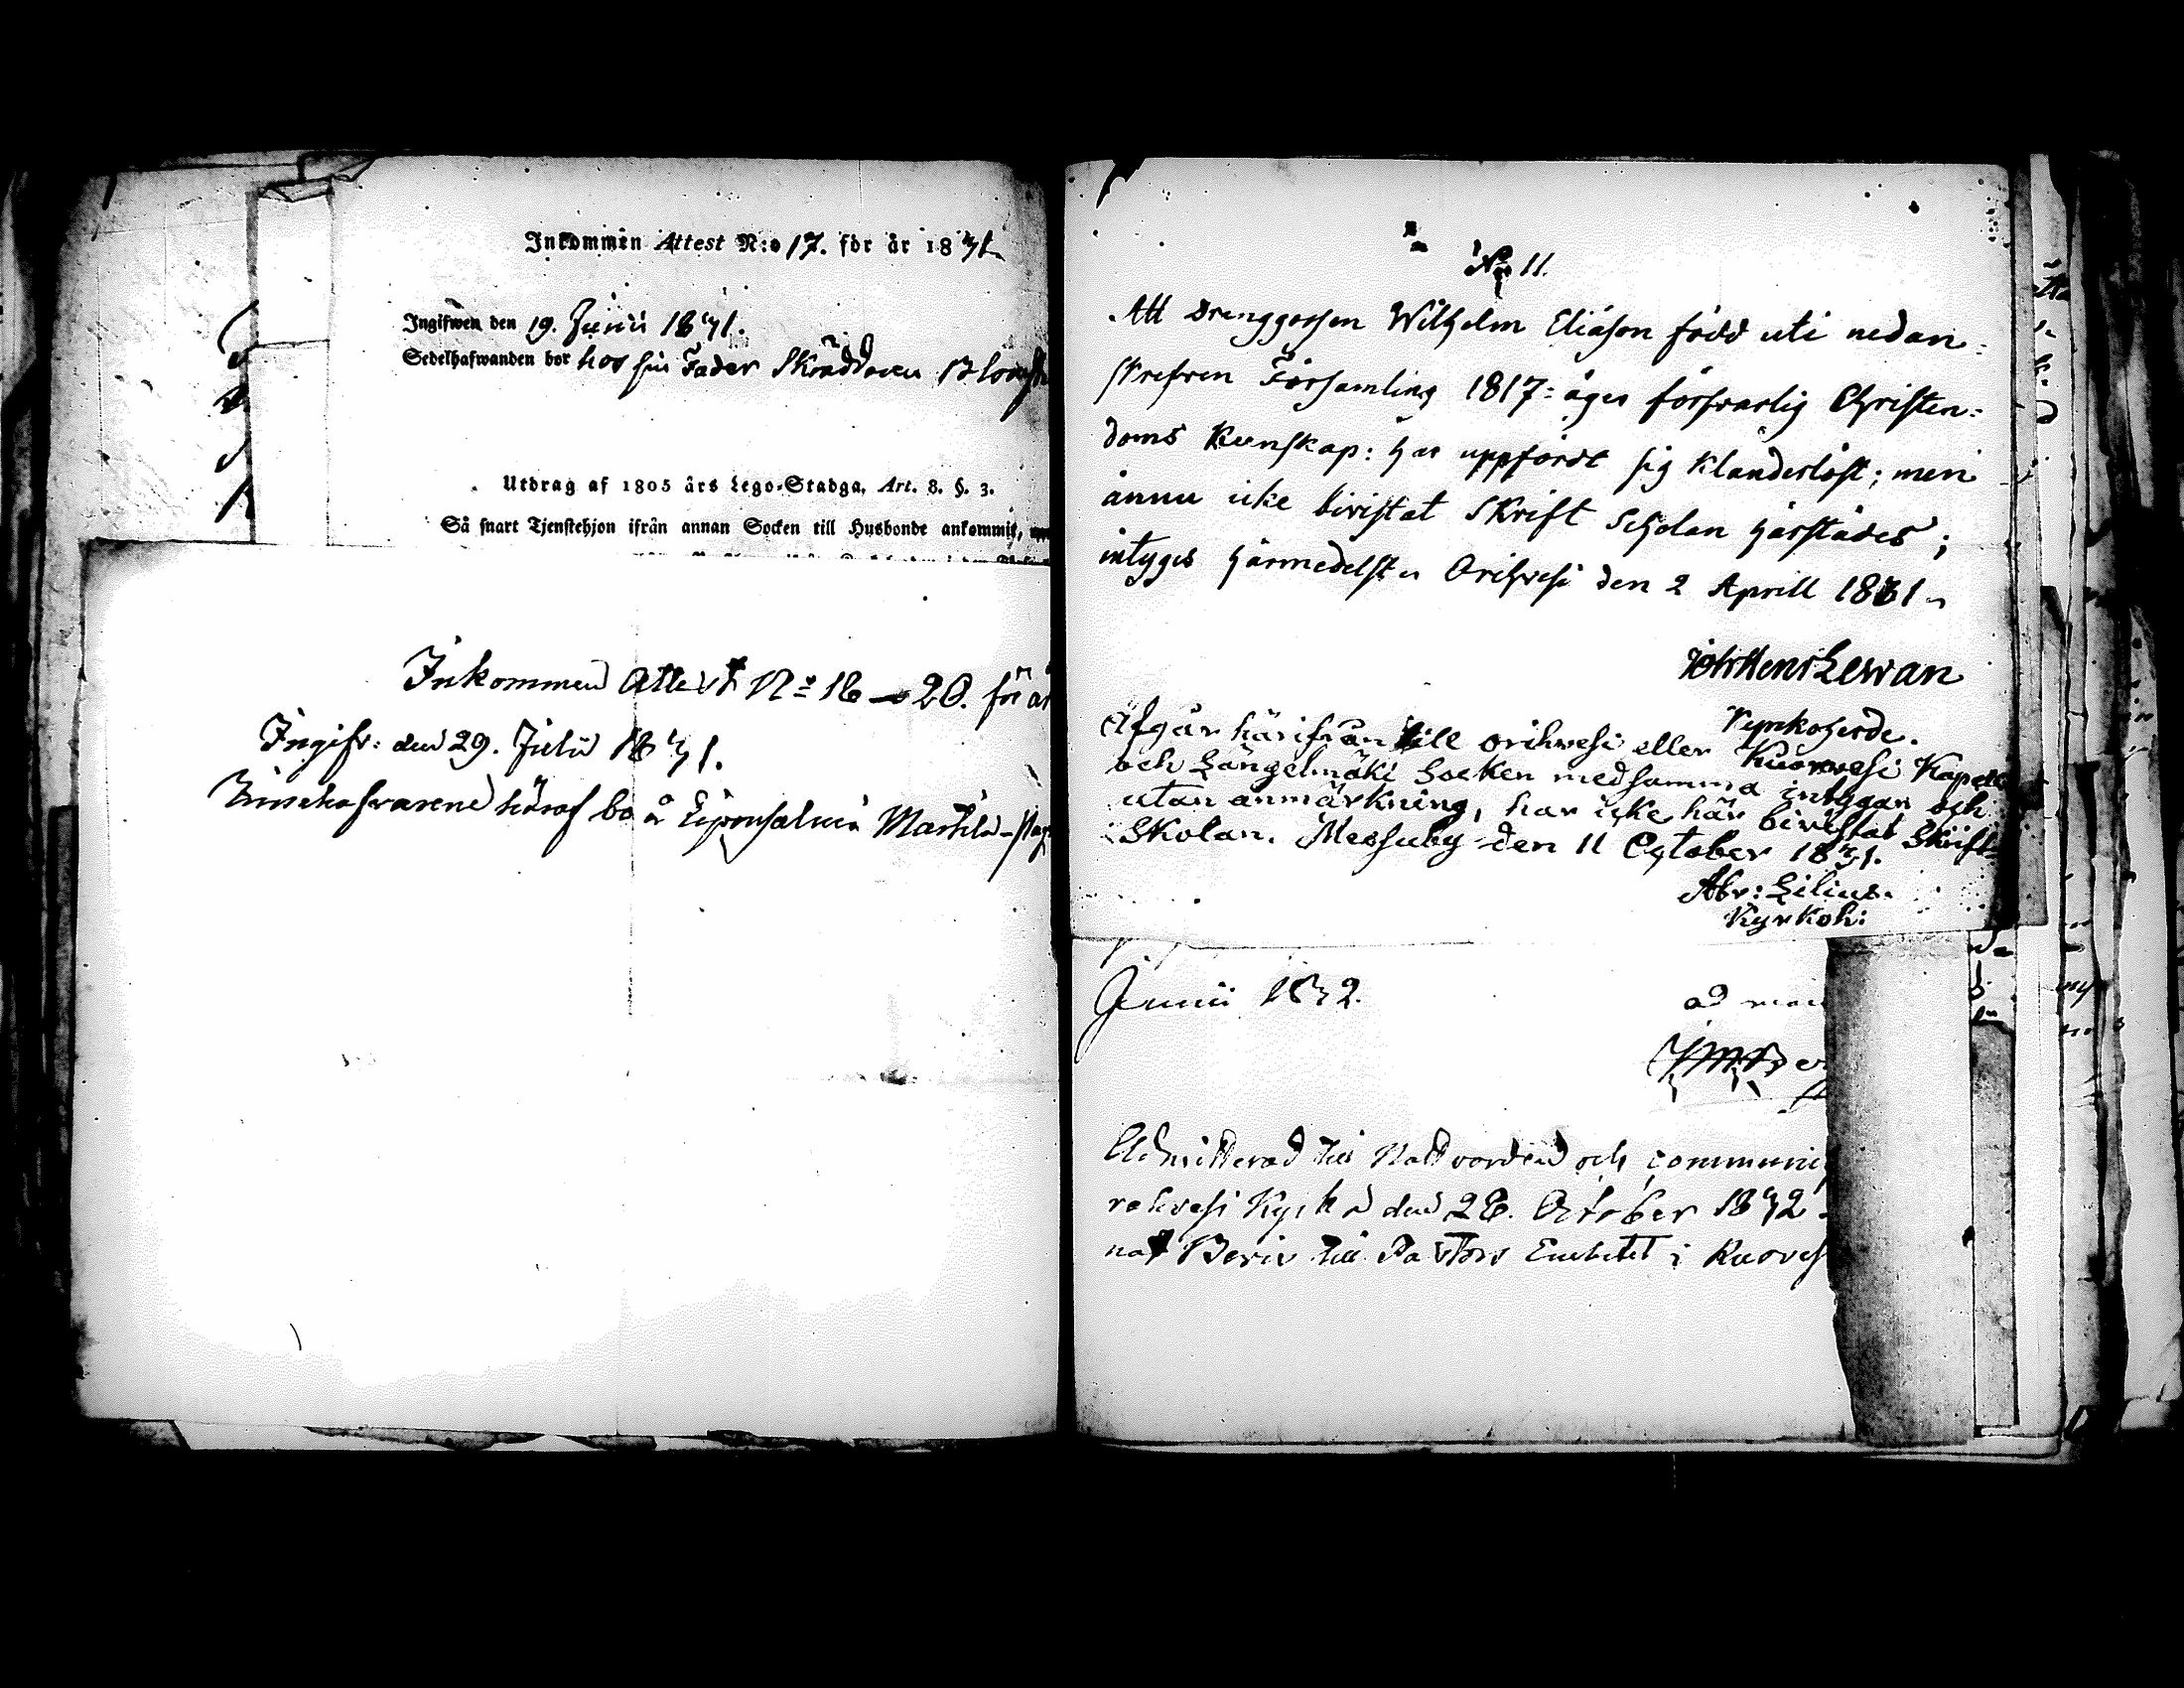 Inkommen Attest N:o 17. för år 1831.
Ingifwen den 19. Junii 1831.
Sedelhafwanden bor hos sin Fader Skräddaren
Utdrag af 1805 års Lego-Stadga, Art. 8. §. 3.
Så snart Tjenstehjon ifrån annan Socken till Husbonde ankommit,
Inkommen Attest No 18 20. för år
Ingifv: den 29. Julii 1831.
härof bo å Martila
No 11.
Att Drenggossen Wilhelm Eliáson född uti nedan-
skrefven Församling 1817: äger försvarlig Christen-
doms Kunskap: har uppfördt sig Klanderlöst; men
ännu icke bivistat Skrift Scholan härstädes;
intyges härmedelst Orihvesi den 2 Aprill 1831
Kyrkoherde.
Afgår härifrån till orihvesi eller Kuorevesi Kapell
och Längelmäki Socken med samma intygan och
utan anmärkning, har icke här bivistat Skrift-
Skolan. Messuby den 11 October 1831.
Abr: Lilius.
Kyrkoh:
Junii 1832.
Admitterad till Nattvarden och
Kyrka den 28. October 1832
till Pastors Embetet i